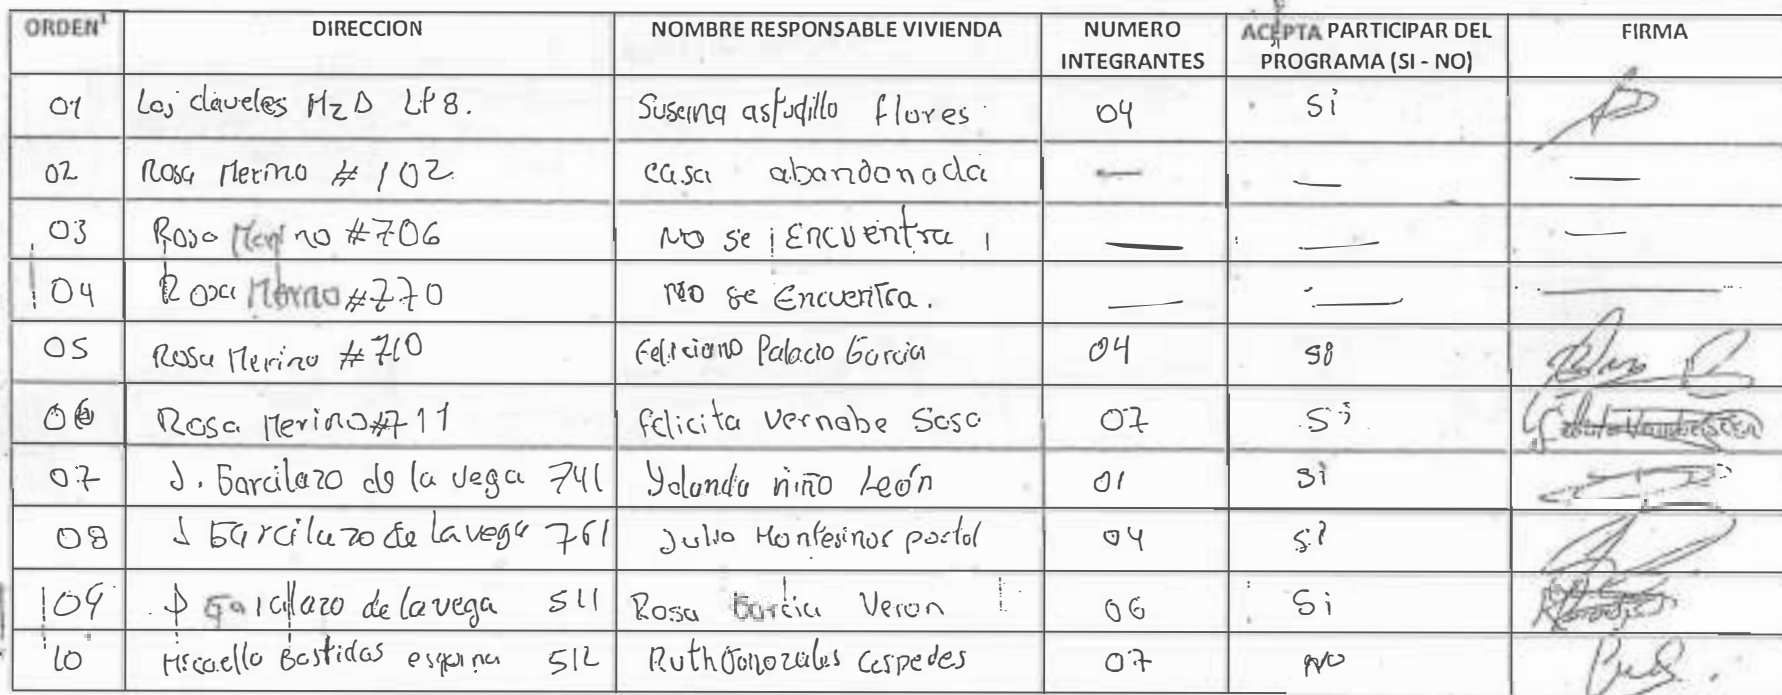 ORDEN¹ DIRECCION NOMBRE RESPONSABLE VIVIENDA NUMERO INTEGRANTES ACEPTA PARTICIPAR DEL PROGRAMA (SI - NO) FIRMA
01 Los claveles Mz D Lt 8. Susana astudillo flores 04 Si
02 Rosa Merino # 102 casa abandonada — — —
03 Rosa Merino #706 No se Encuentra — — —
04 Rosa Merino #770 No se Encuentra. — — —
05 Rosa Merino #710 Feliciano Palacio Garcia 04 si
06 Rosa Merino #711 felicita Vernabe Sosa 07 Si
07 J. Garcilazo de la vega 741 Yolanda niño León 01 Si
08 J Garcilazo de la vega 761 Julio Montesinos portal 04 si
09 Garcilazo de la vega 511 Rosa Garcia Veron 06 Si
10 Micaella Bastidas esquina 512 Ruth Gonozales Cespedes 07 NO